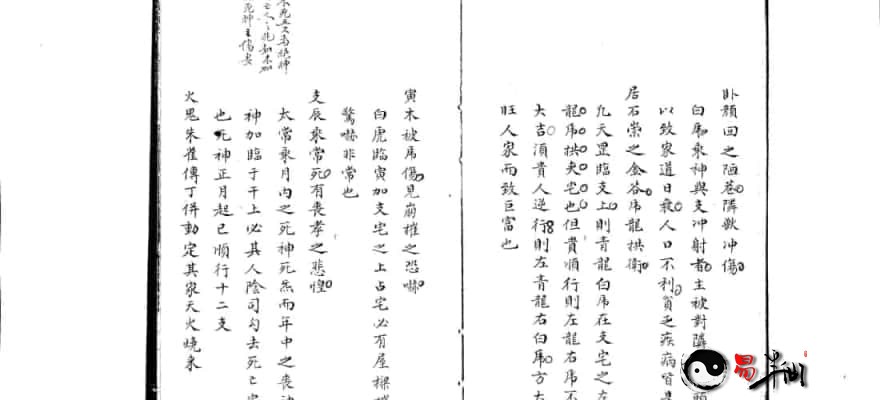 卧顏回之陋巷隣獸冲傷
白虎乘神與支冲射者主被對隣
以致家道日衰人口不利貧乏疾病皆
居石崇之金谷虎龍拱衛
九天罡臨支上則青龍白虎在支宅之左
龍虎拱夾宅也但貴順行則左龍右虎不
大吉須貴人逆行則左青龍右白虎方
旺人家而致巨富也
寅木被虎傷見崩摧之恐嚇
白虎臨寅加支宅之上占宅必有屋樑摧
驚嚇非常也
支辰乘常死有喪孝之悲惶
太常乘月内之死神死炁而年中之喪
神加臨于干上必其人陰司勾去死亡
也死神正月起巳順行十二支
火鬼朱雀傳丁併動定其家天火燒來
易半仙